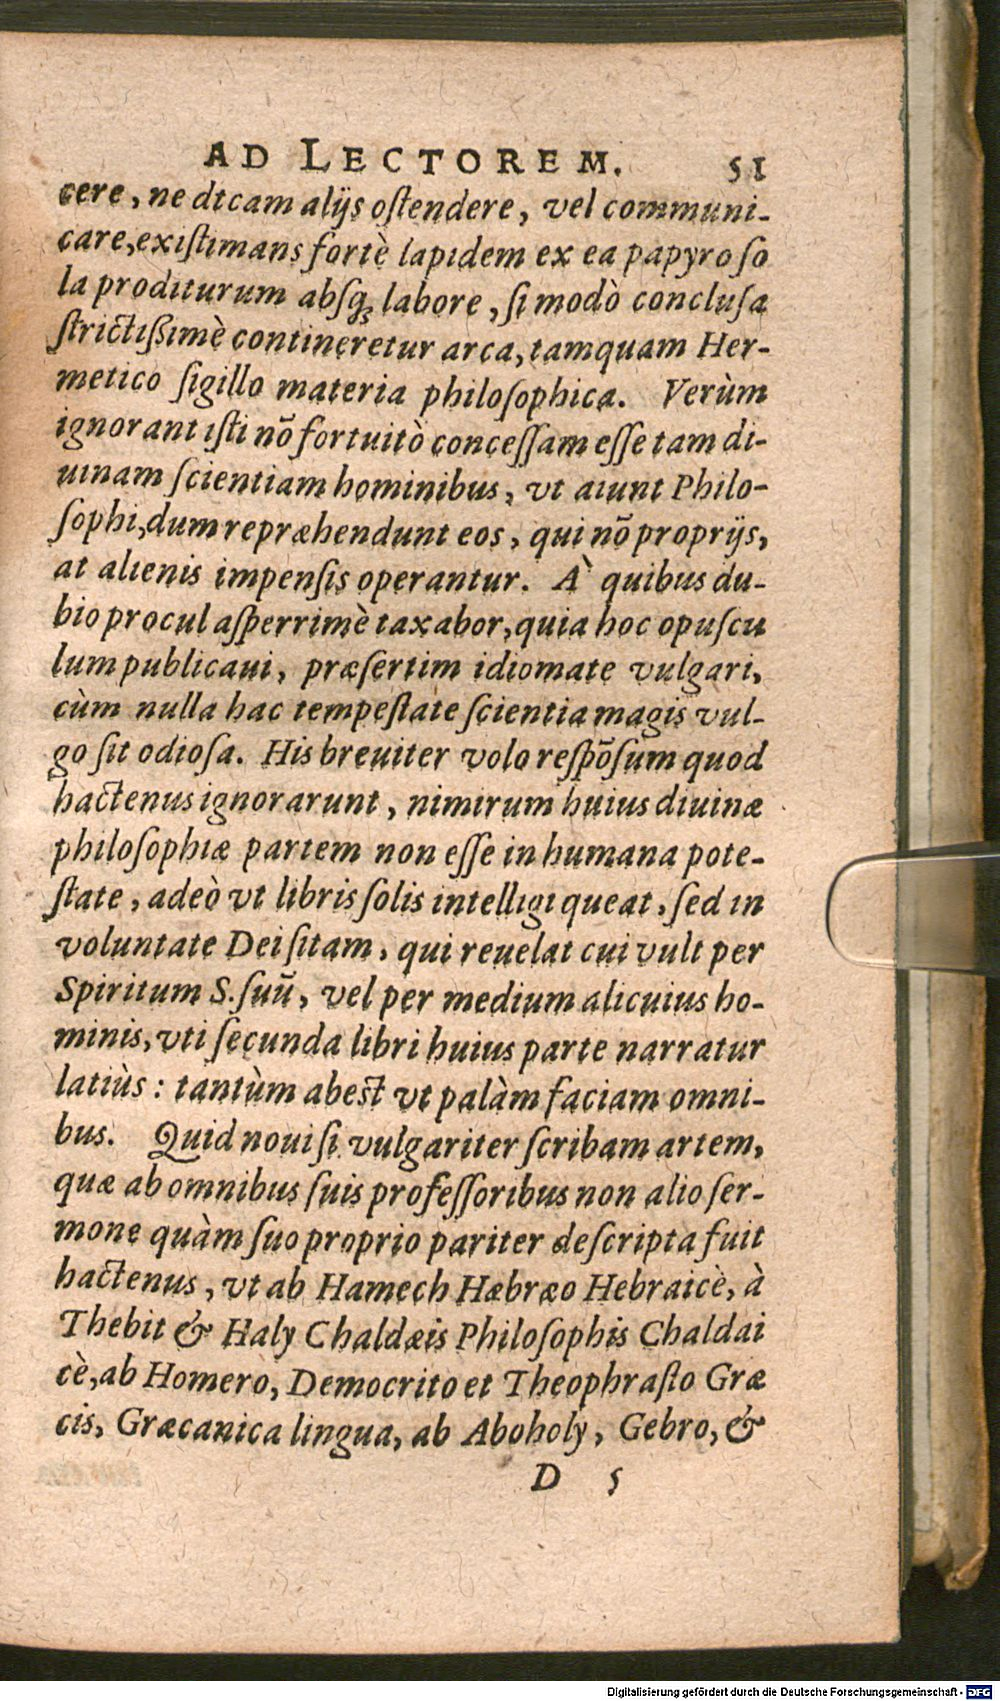 AD LECTOREM. 51
cere, ne dicam alijs oſtendere, vel communi-
care, exiſtimans fortè lapidem ex ea papyro ſo
la proditurum abſq; labore, ſi modò concluſa
ſtrictißimè contineretur arca, tamquam Her-
metico ſigillo materia philoſophica. Verùm
ignorant iſti nõ fortuitò conceſſam eſſe tam di-
uinam ſcientiam hominibus, vt aiunt Philo-
ſophi, dum repræhendunt eos, qui nõ proprijs,
at alienis impenſis operantur. A` quibus du-
bio procul aſperrimè taxabor, quia hoc opuſcu
lum publicaui, præſertim idiomate vulgari,
cùm nulla hac tempeſtate ſcientia magis vul-
go ſit odioſa. His breuiter volo reſpõſum quod
hactenus ignorarunt, nimirum huius diuinæ
philoſophiæ partem non eſſe in humana pote-
ſtate, adeò vt libris ſolis intelligi queat, ſed in
voluntate Dei ſitam, qui reuelat cui vult per
Spiritum S. ſuũ, vel per medium alicuius ho-
minis, vti ſecunda libri huius parte narratur
latiùs: tantùm abest vt palàm faciam omni-
bus. Quid noui ſi vulgariter ſcribam artem,
quæ ab omnibus ſuis profeſſoribus non alio ſer-
mone quàm ſuo proprio pariter deſcripta fuit
hactenus, vt ab Hamech Hæbræo Hebraicè, à
Thebit & Haly Chaldæis Philoſophis Chaldai
cè, ab Homero, Democrito et Theophraſto Græ
cis, Græcanica lingua, ab Aboholy, Gebro, &
D 5
Digitalisierung gefördert durch die Deutsche Forschungsgemeinschaft - DFG